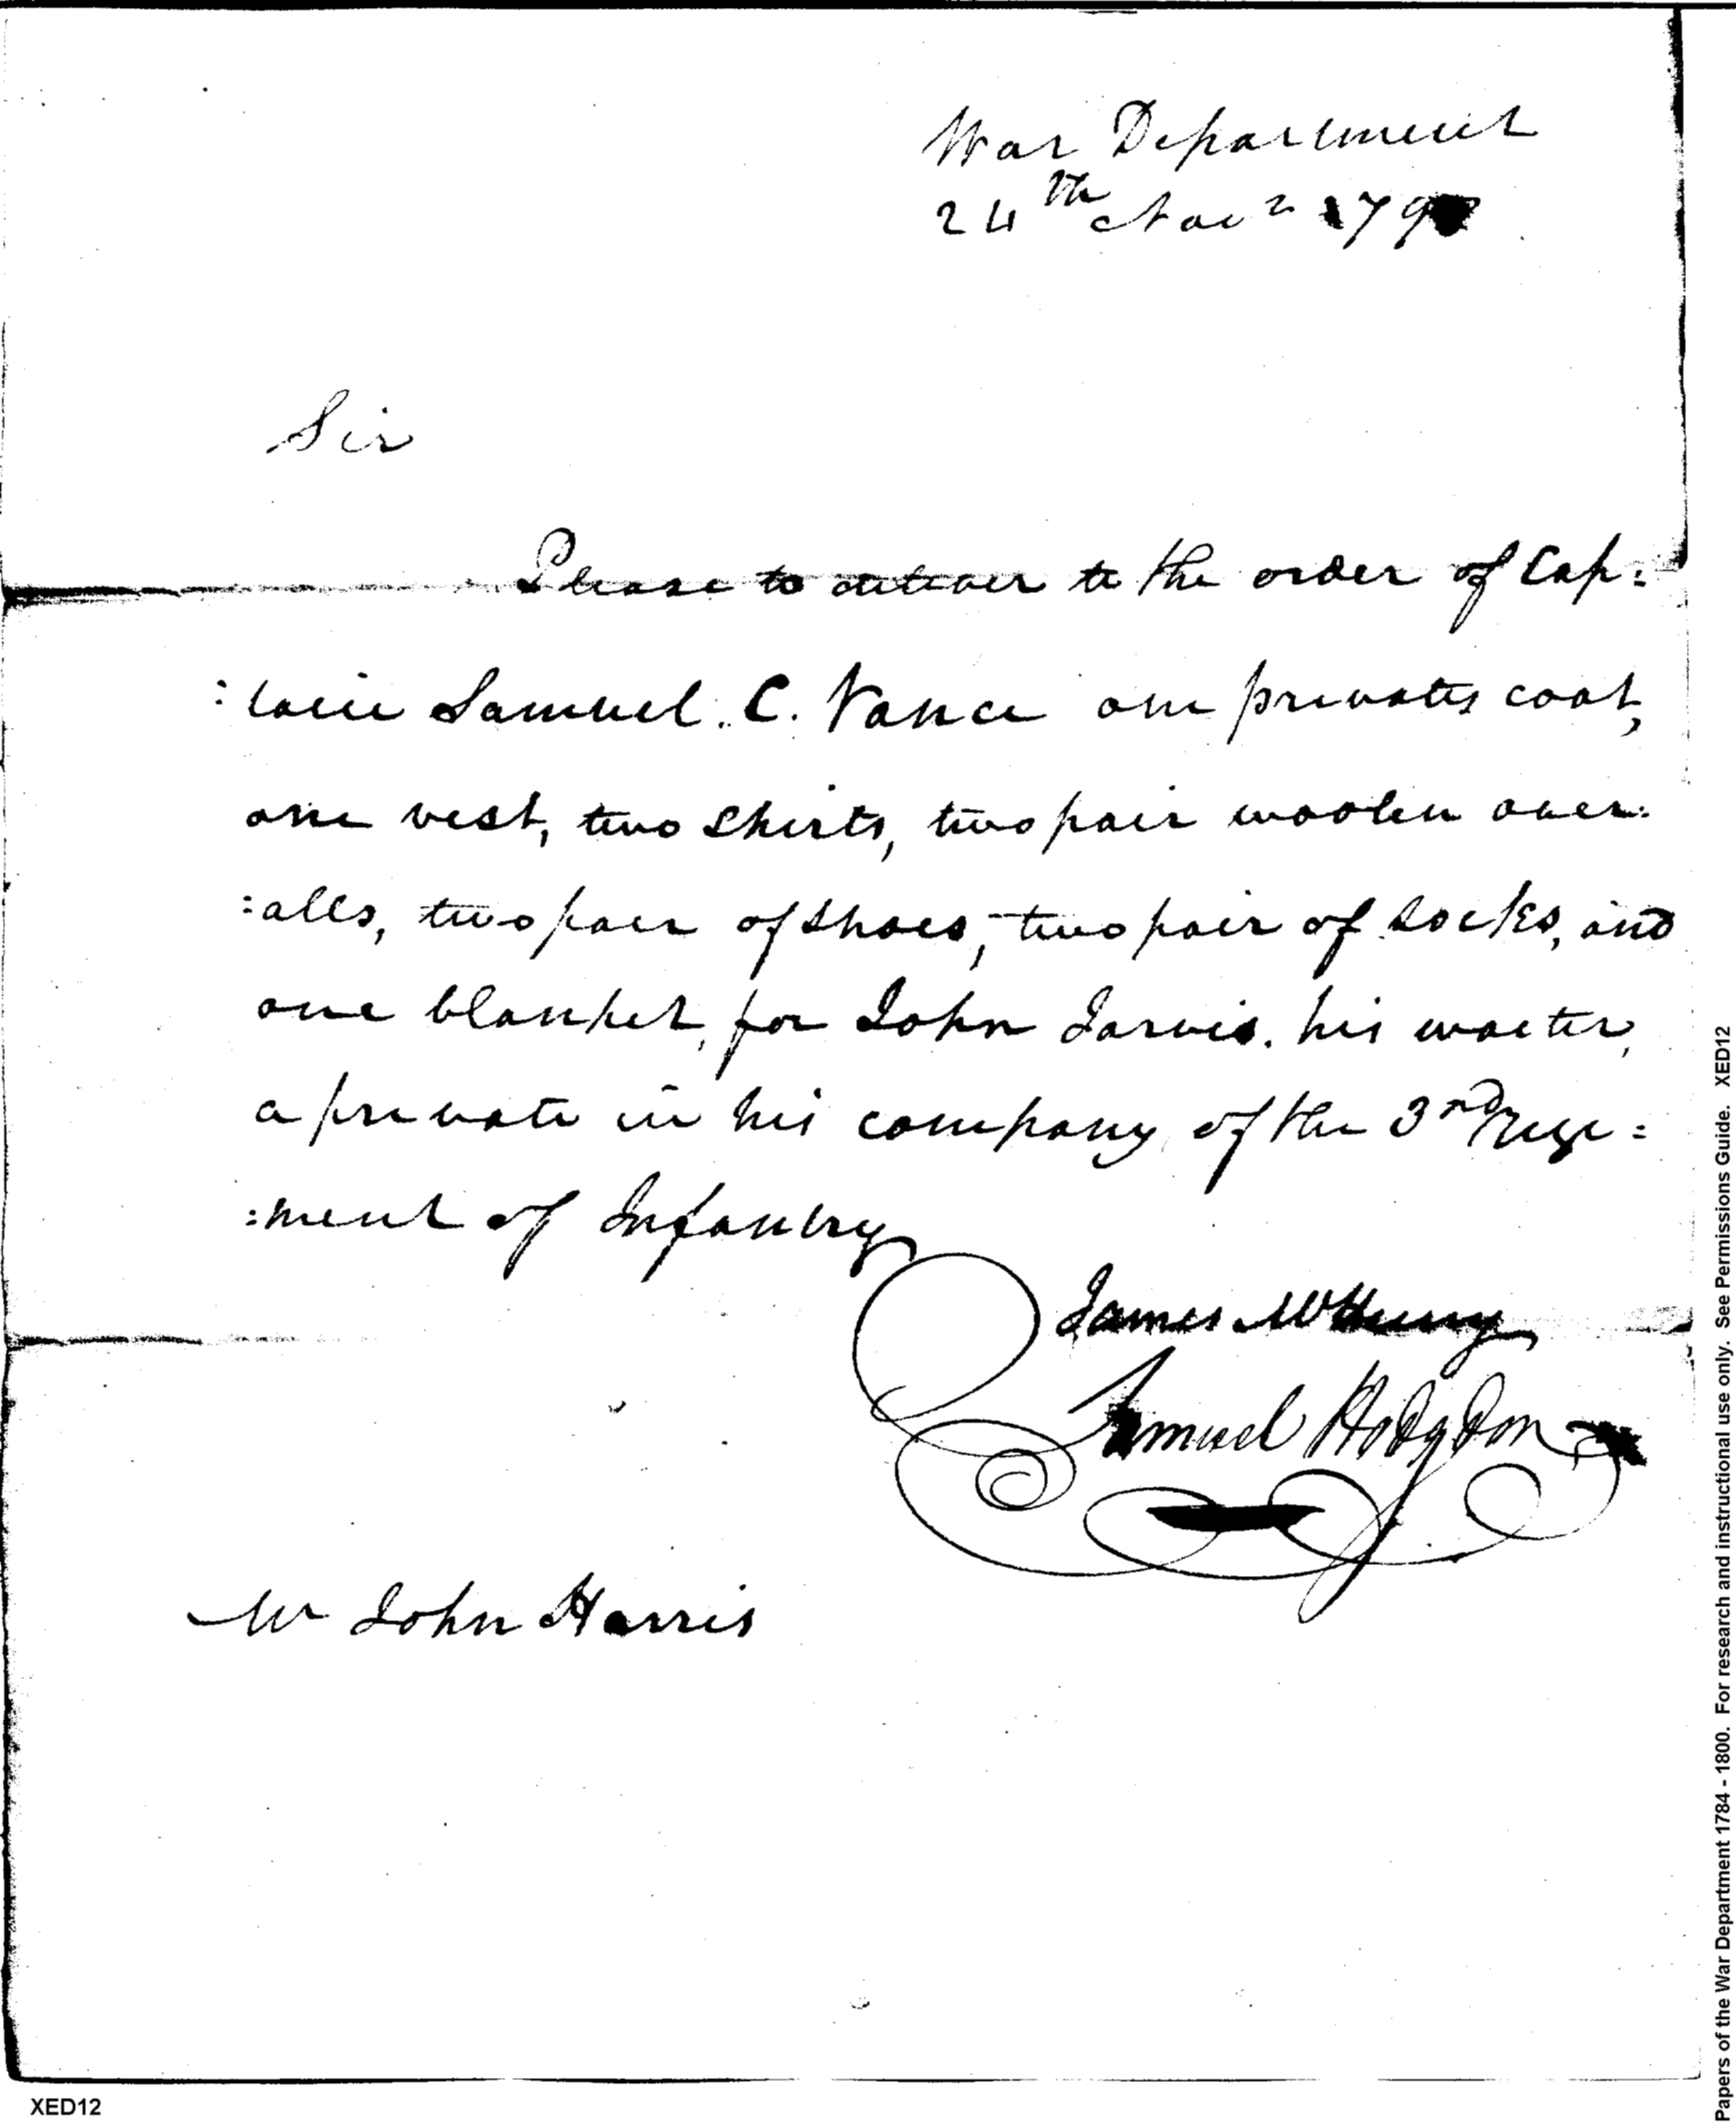 War Department
24th Novr 179
Sir
Please to deliver to the order of Cap:
:tain Samuel. C. Vance one privates coat,
one vest, two shirts, two pair woolen over:
:alls, two pair of shoes, two pair of socks, and
one blanket, for John Jarvis. his waiter,
a private in his company of the 3rd Regi:
:ment of Infantry
James McHenry
Samuel Hodgdon
Mr John Harris
XED12
Papers of the War Department 1784 - 1800. For research and instructional use only. See Permissions Guide. XED12